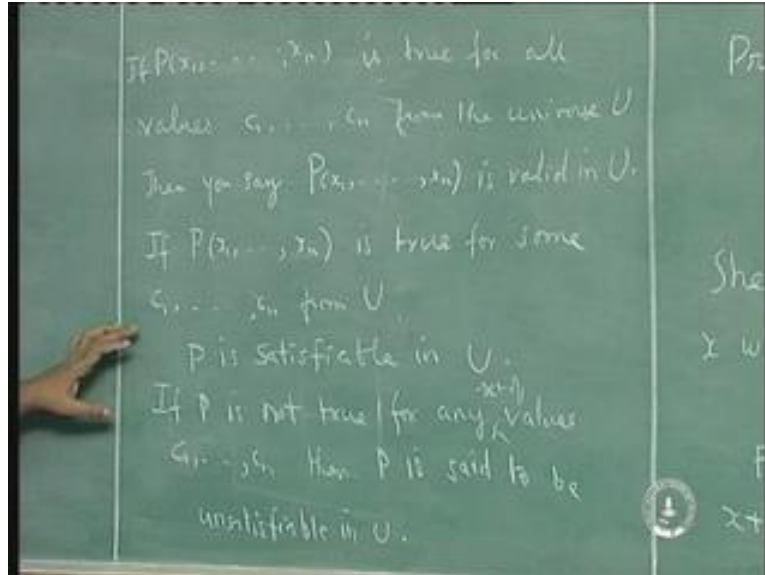 If P(x₁, - - - - , xₙ) is true for all
values c₁, . . . . , cₙ from the universe U
Then you say P(x₁, - - - , xₙ) is valid in U.
If P(x₁, - - , xₙ) is true for some
c₁, - - - - , cₙ from U.
P is satisfiable in U.
If P is not true for any values
c₁, - - , cₙ then P is said to be
unsatisfiable in U.
Pr
She
x w
x+